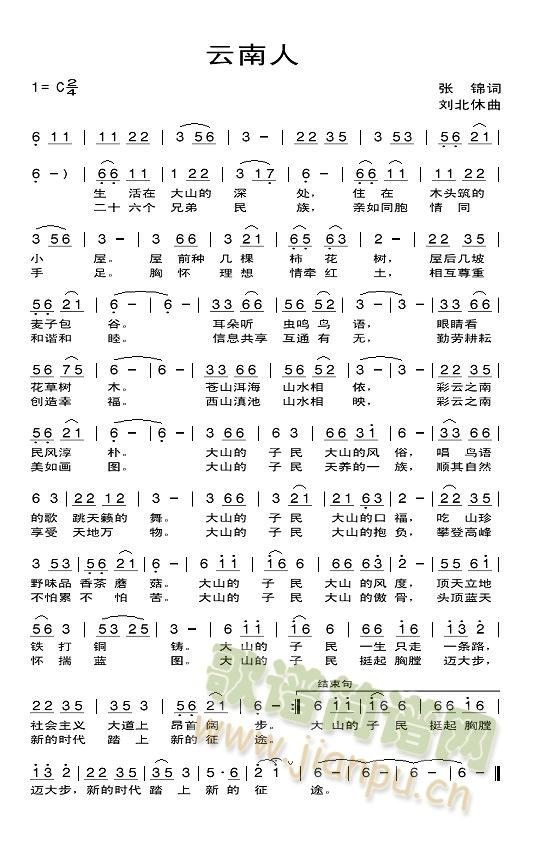 云南人
1= C 2/4
张 锦词
刘北休曲
6 11 | 11 22 | 3 56 | 3 - | 22 35 | 3 53 | 56 21 |
6 -) | 66 11 | 1 22 | 3 17 | 6 - | 66 11 | 11 22 |
生 活在 大山的 深 处, 住 在 木头筑的
二十 六个 兄弟 民 族, 亲如同胞 情 同
3 56 | 3 - | 3 35 | 6 66 | 3 21 | 65 63 | 2 - | 22 35 |
小 屋。 屋 前种 几 棵 柿 花 树, 屋后几坡
手 足。 胸 怀 理 想 情牵 红 土, 相互尊重
56 21 | 6 - | 6 - | 33 66 | 56 52 | 3 - | 3 - | 33 66 |
麦子包 谷。 耳朵听 虫鸣 鸟 语, 眼睛看
和谐和 睦。 信息共享 互通 有 无, 勤劳耕耘
56 75 | 6 - | 6 - | 33 66 | 56 52 | 3 - | 3 - | 33 66 |
花草树 木。 苍山洱海 山水相 依, 彩云之南
创造幸 福。 西山滇池 山水相 映, 彩云之南
56 21 | 6 - | 6 - | 3 66 | 3 66 | 66 31 | 6 - | 3 66 |
民风淳 朴。 大山的 子民 大山的风 俗, 唱 鸟语
美如画 图。 大山的 子民 天养的一 族, 顺其自然
6 3 | 22 12 | 3 - | 3 66 | 3 21 | 21 63 | 2 - | 2 35 |
的歌 跳天籁的 舞。 大山的 子民 大山的口 福, 吃 山珍
享受 天地万 物。 大山的 子民 大山的抱 负, 攀登高峰
3 53 | 56 21 | 6 - | 6 11 | 6 16 | 66 56 | 3 - | 22 35 |
野味品 香茶 蘑 菇。 大山的 子 民 大山 的风 度, 顶天立地
不怕累 不 怕 苦。 大山的 子 民 大山 的傲 骨, 头顶蓝天
56 3 | 53 25 | 3 - | 6 11 | 6 3 | 16 6 | 13 2 |
铁 打 铜 铸。 大 山的 子 民 一生 只走 一条路,
怀 揣 蓝 图。 大 山的 子 民 挺起 胸膛 迈大步,
结束句
22 35 | 35 3 | 56 21 | 6 - :‖ 6 11 | 6 3 | 16 6 |
社会主义 大道上 昂首 阔 步。 大 山的 子 民 挺起 胸膛
新的时代 踏 上 新的 征 途。
13 2 | 22 35 | 35 3 | 5 6 | 2 1 | 6 - | 6 - | 6 - ‖
迈大步, 新的时代 踏 上 新 的 征 途。
歌谱简谱网
www.jianpu.cn